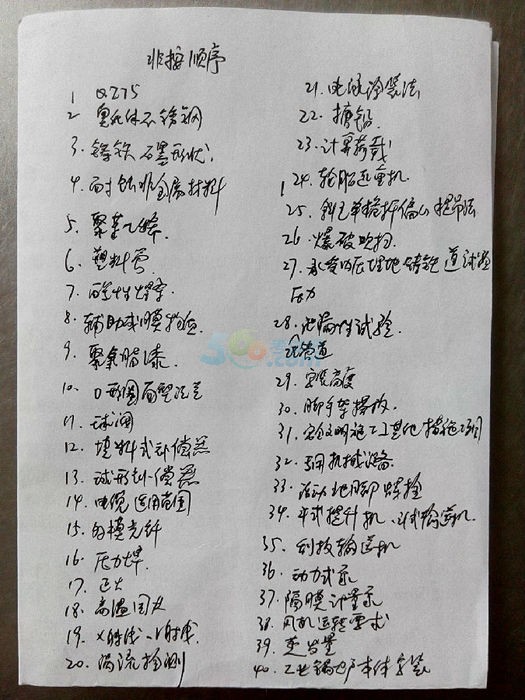 非按顺序
1 Q275
2 奥氏体不锈钢
3. 铸铁石墨形状
4. 耐蚀非金属材料
5. 聚苯乙烯
6. 塑料管
7. 酸性焊条
8. 辅助成膜物质
9. 聚氨脂漆
10. O形圈面型法兰
11. 球阀
12. 填料式补偿器
13. 球形补偿器
14. 电缆选用范围
15. 多模光纤
16. 压力焊
17. 正火
18. 高温回火
19. X射线、γ射线
20. 涡流检测
21. 电泳涂装法
22. 搪铅
23. 计算荷载
24. 轮胎起重机
25. 斜立单桅杆偏心提吊法
26. 爆破吹扫
27. 承受内压埋地铸铁管道试验
压力
28. 泄漏性试验
29. 安装高度
30. 脚手架搭拆
31. 安全文明施工及其他措施项目
32. 专用机械设备
33. 活动地脚螺栓
34. 斗式提升机、斗式输送机
35. 刮板输送机
36. 动力式泵
37. 隔膜计量泵
38. 风机运转要求
39. 
40. 工业锅炉本体安装